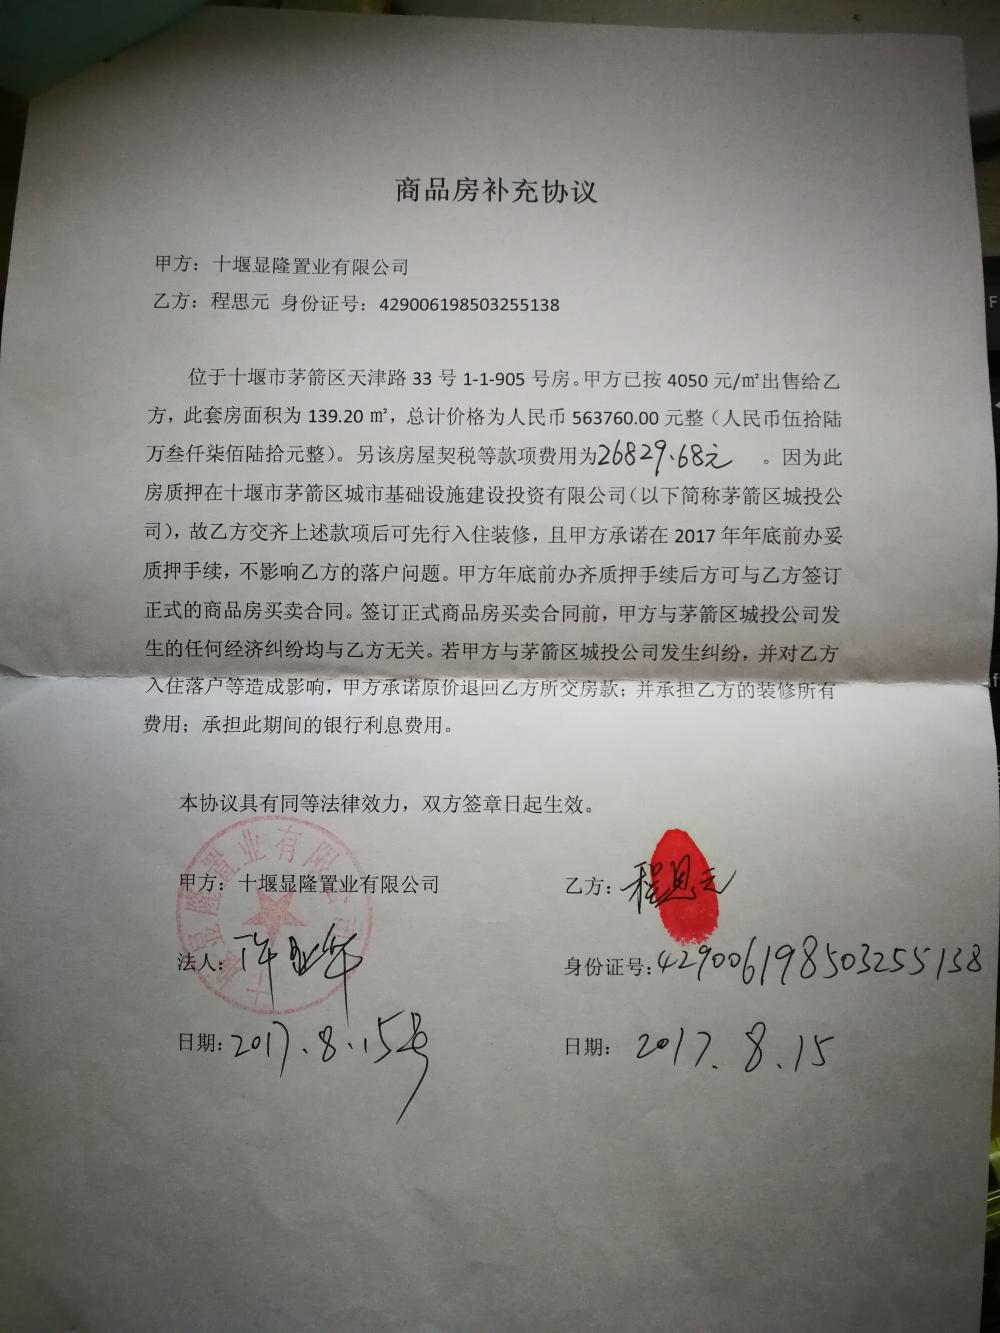 商品房补充协议
甲方：十堰显隆置业有限公司
乙方：程思元 身份证号：429006198503255138
位于十堰市茅箭区天津路 33 号 1-1-905 号房。甲方已按 4050 元/㎡出售给乙
方，此套房面积为 139.20 ㎡，总计价格为人民币 563760.00 元整（人民币伍拾陆
万叁仟柒佰陆拾元整）。另该房屋契税等款项费用为26829.68元 。因为此
房质押在十堰市茅箭区城市基础设施建设投资有限公司（以下简称茅箭区城投公
司），故乙方交齐上述款项后可先行入住装修，且甲方承诺在 2017 年年底前办妥
质押手续，不影响乙方的落户问题。甲方年底前办齐质押手续后方可与乙方签订
正式的商品房买卖合同。签订正式商品房买卖合同前，甲方与茅箭区城投公司发
生的任何经济纠纷均与乙方无关。若甲方与茅箭区城投公司发生纠纷，并对乙方
入住落户等造成影响，甲方承诺原价退回乙方所交房款；并承担乙方的装修所有
费用；承担此期间的银行利息费用。
本协议具有同等法律效力，双方签章日起生效。
十堰显隆置业有限公司
甲方：十堰显隆置业有限公司
乙方：程思元
法人：
身份证号：429006198503255138
日期：2017.8.15号
日期：2017.8.15